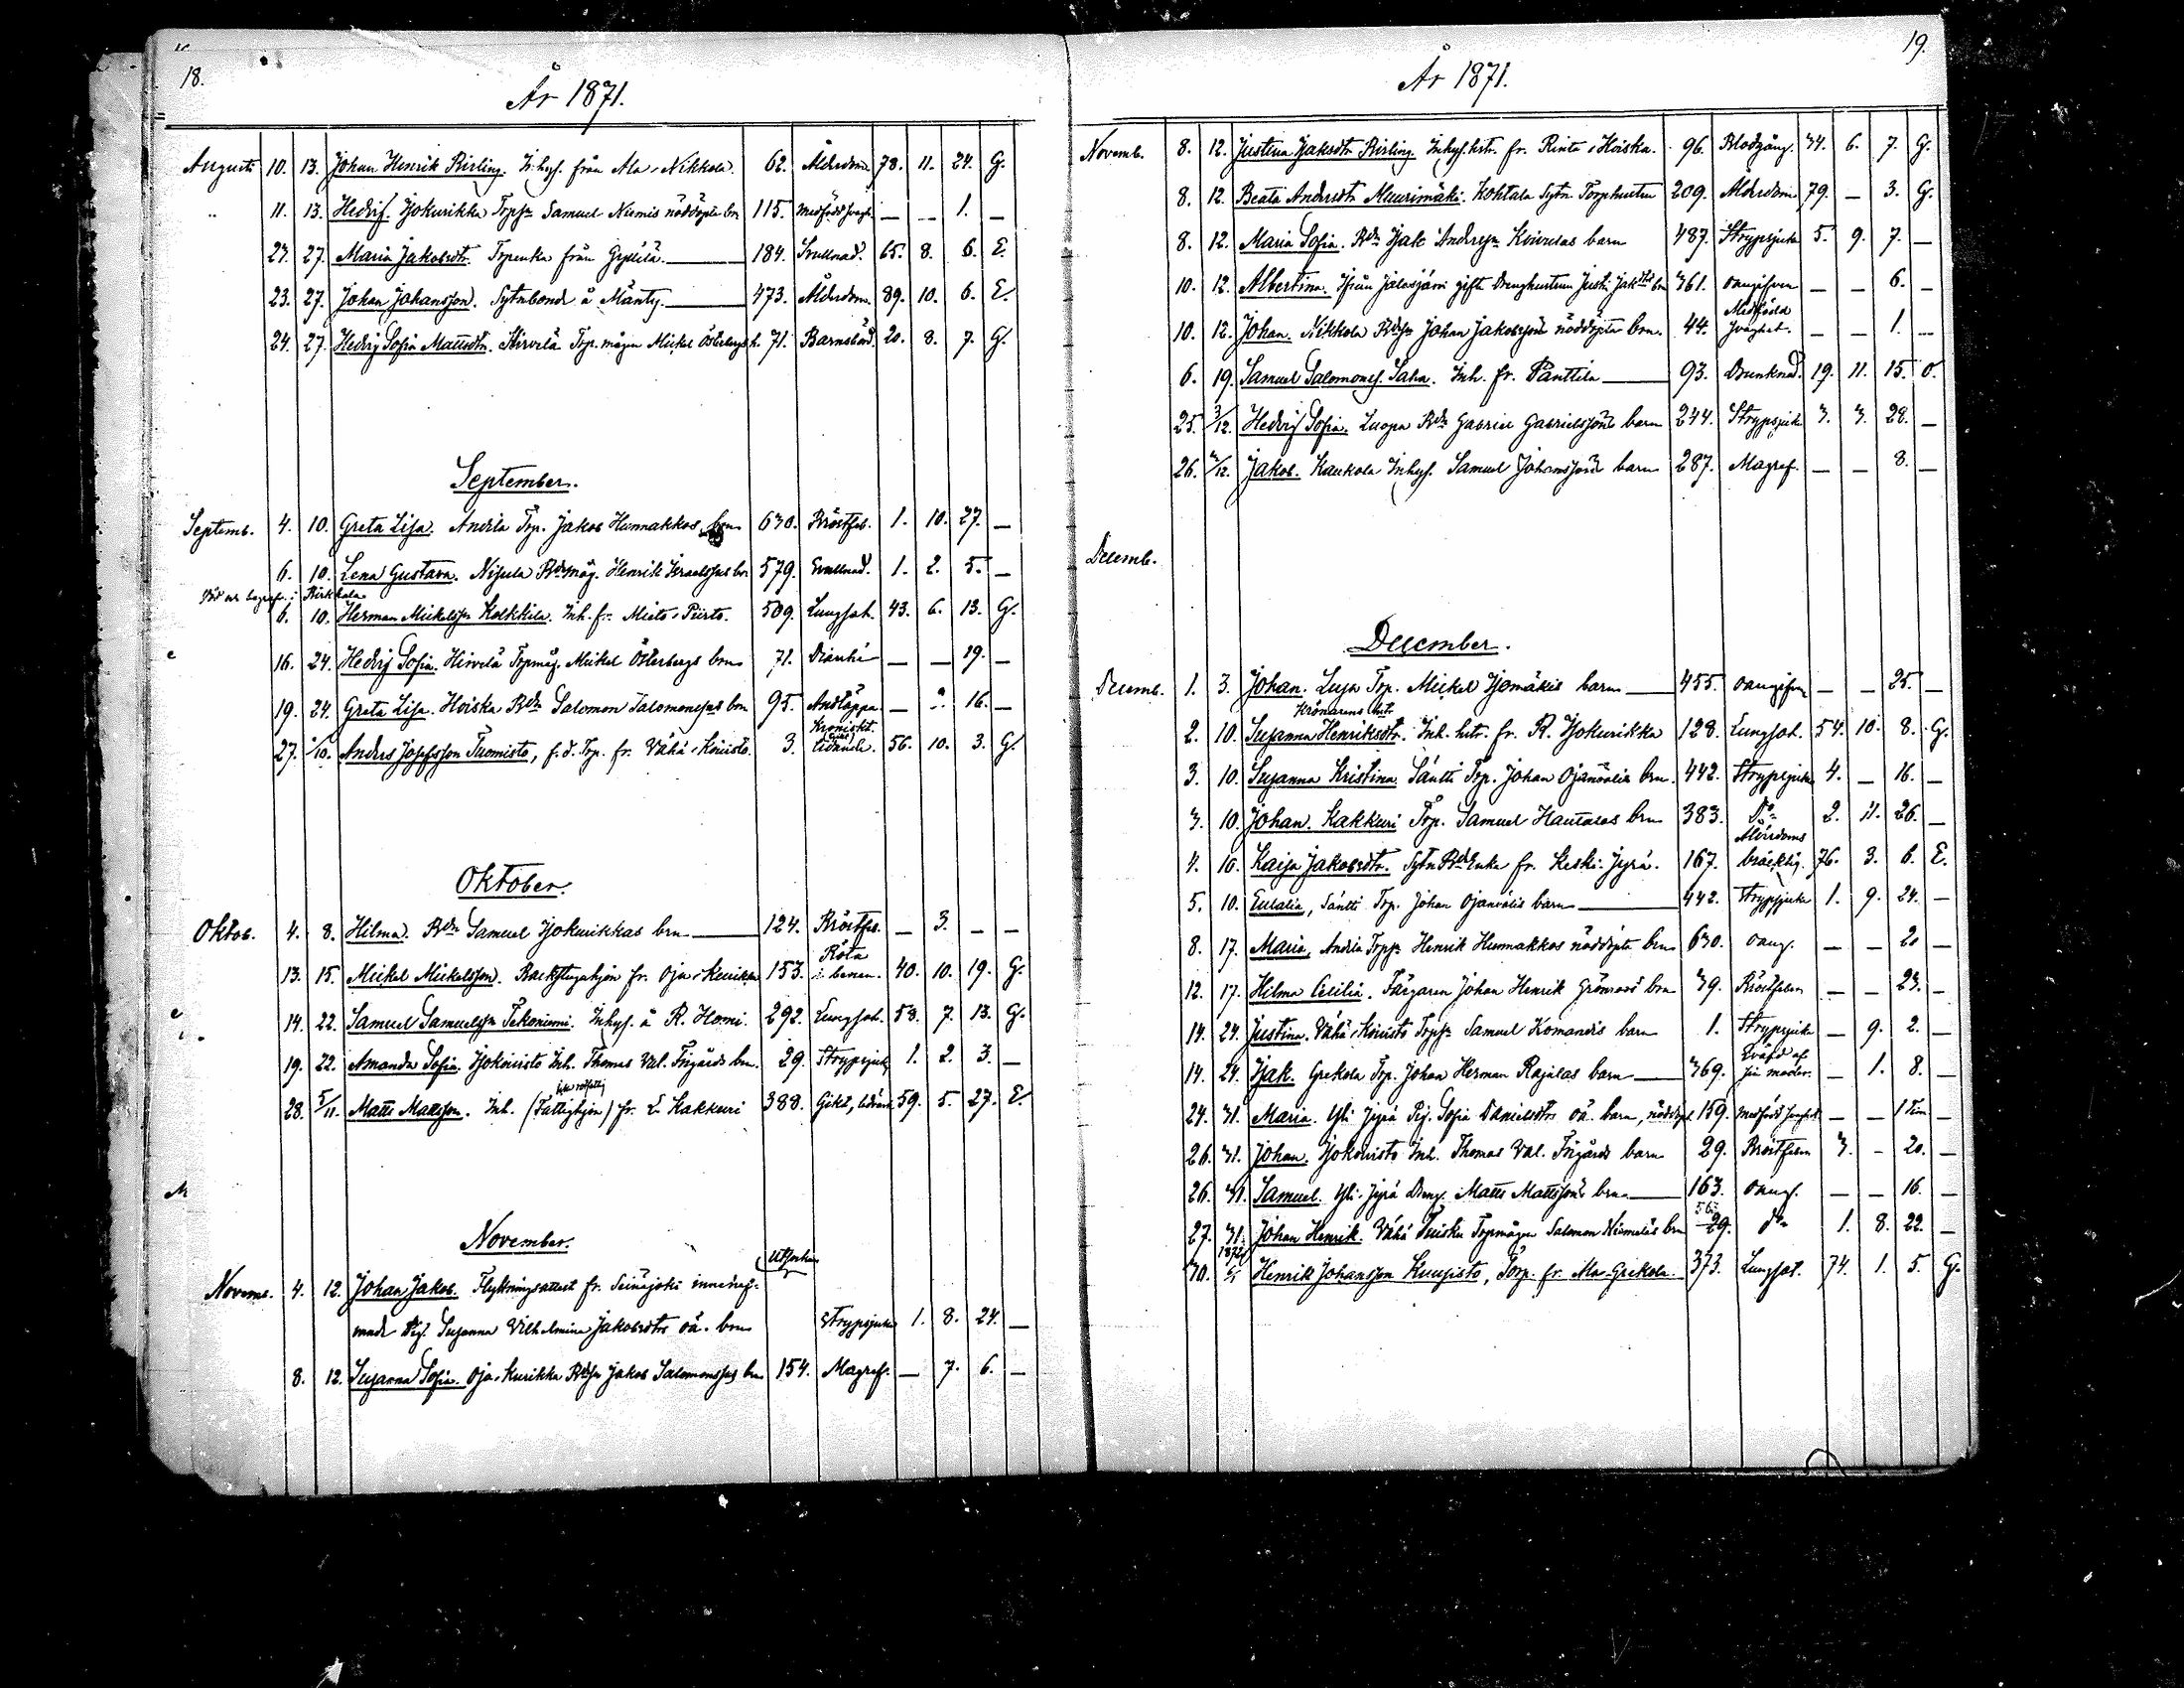 18.
År 1871.
Augusti 10. 13. Johan Henrik Risling. Inhys. från Ala-Nikkola. 62. Ålderdom 78. 11. 24. G.
" 11. 13. Hedvig. Jjokurikka Torps. Samuel Niemis nöddöpta bn 115. medfödd svagh. — — 1. —
23. 27. Maria Jakobsdtr. Torpenka från 184. Svullnad. 65. 8. 6. E.
23. 27. Johan Johansson. Sytnbonde å Mänty. 473. Ålderdom. 89. 10. 6. E.
24. 27. Hedvig Sofia Mattsdtr. Hirvelä Torp.mågen Mickel Österbergs h. 71. Barnsbörd. 20. 8. 7. G.
September.
Septemb. 4. 10. Greta Lisa. Anrila Torp. Jakob Hunnakkos brn 630. Bröstfeb. 1. 10. 27. —
6. 10. Lena Gustava. Nisula Bdemåg. Henrik Israelssons bn 579. Svullnad. 1. 2. 5. —
6. 10. Herman Mickelsson Kolkkila. Inh. fr. Mieto-Piirto. 509. Lungsot. 43. 6. 13. G.
16. 24. Hedvig Sofia. Hirvelä Torpmåg. Mickel Österbergs brn 71. Diarrhé — — 19. —
19. 24. Greta Lisa. Hoiska Bdn Salomon Salomonssons brn 95. Andtäppa — " 16. —
27. 1/10. Anders Josefsson Tuomisto, f.d. Torp. fr. Vähä-Könisto. 3. Kroniskt lidande. 56. 10. 3. G.
Oktober.
Oktob. 4. 8. Hilma. Bdn Samuel Jjokurikkas brn 124. Bröstfeb. — 3. — —
13. 15. Mickel Mickelsson. Backstuguhjon fr. Oja-Kurikka 153. Röta i benen. 40. 10. 19. G.
14. 22. Samuel Samuelsson Tekoniemi. Inhys. å R. Homi. 292. Lungsot. 53. 7. 13. G.
19. 22. Amanda Sofia. Jjokoiristo Inh. Thomas Val. Frigårds brn. 29. Strypsjuka 1. 2. 3. —
28. 5/11. Matts Mattsson. Inh. (Fattighjon) fr. L. Kakkuri 388. Gikt, lidande 59. 5. 27. E.
November.
Novemb. 4. 12. Johan Jakob. Flyttningsattest fr. Seinäjoki innehaf-
vande Pig. Susanna Vilhelmina Jakobsdtrs oä. brn Strypsjuka 1. 8. 24. —
8. 12. Susanna Sofia. Oja-Kurikka Bdsn Jakob Salomonssons brn 154. Magref. — 7. 6. —
19.
År 1871.
Novemb. 8. 12. Justina Jakobsdtr Risling. Inhys.hstr. fr. Rinta-Hoiska. 96. Blodgång. 34. 6. 7. G.
8. 12. Beata Andersdtr Meurimäki. Kohtala Sytn Torphustru 209. Ålderdom 79. — 3. G.
8. 12. Maria Sofia. Bdn Isak Anderssn Koivulas barn 487. Strypsjuka 5. 9. 7. —
10. 12. Albertina. Ifrån Jalasjärvi gifta Drenghustrun Just. Jakdtrs bn 361. oangifven — — 6. —
10. 12. Johan. Nikkola Bdsn Johan Jakobssons nöddöpta brn. 44. Medfödd svaghet. — — 1. —
6. 19. Samuel Salomonss. Saha. Inh. fr. Panttila 93. Drunknad. 19. 11. 15. O.
25. 3/12. Hedvig Sofia. Luopa Bdn Gabriel Gabrielssons barn 244. Strypsjuka 3. 3. 28. —
26. 3/12. Jakob. Kaukola Inhys. Samuel Johanssons barn 287. Magref. — — 8. —
Decemb.
December.
Decemb. 1. 3. Johan. Torp. Mickel Isomäkis barn 455. oangifven — — 25. —
2. 10. Susanna Henriksdtr. Inh. hstr. fr. R. Jjokurikka 128. Lungsot. 54. 10. 8. G.
3. 10. Susanna Kristina. Säntti Torp. Johan Ojanvälis brn. 442. Strypsjuka 4. — 16. —
3. 10. Johan. Kakkuri Torp. Samuel Hautalas brn 383. Do 2. 11. 26. —
4. 10. Kaisa Jakobsdtr. Sytn Bdeenka fr. Keski-Jyrä. 167. Ålderdoms bräcklig. 76. 3. 6. E.
5. 10. Eulalia, Säntti Torp. Johan Ojanvälis barn 442. Strypsjuka 1. 9. 24. —
8. 17. Maria, Anrila Torps. Henrik Hunnakkos nöddöpta brn 630. oang. — — 20 —
12. 17. Hilma Cecilia. Färgaren Johan Henrik Grönroos' brn 39. Bröstfeber — — 23. —
14. 24. Justina. Vähä-Könisto Torps. Samuel Komandis barn 1. Strypsjuka — 9. 2. —
14. 24. Isak. Grekola Torp. Johan Herman Rajalas barn 369. Qväfd af sin moder. — 1. 8. —
24. 31. Maria. Yli Jyrä Pig. Sofia Danielsdtrs oä. barn, nöddöpt. 159. medfödd svaghet — — 1 Tim —
26. 31. Johan. Jjokoiristo Inh. Thomas Val. Frigårds barn 29. Bröstfeber 3. — 20. —
26. 31. Samuel. Yli-Jyrä Dreng. Matts Mattssons brn 163. oang. — — 16. —
27. 31. Johan Henrik. Vähä Torpmågen Salomon Niemeläs brn 29. Do 1. 8. 22. —
30. 1872 Henrik Johansson Kuusisto, Torp. fr. Ala-Grekola. 373. Lungsot. 74. 1. 5. G.